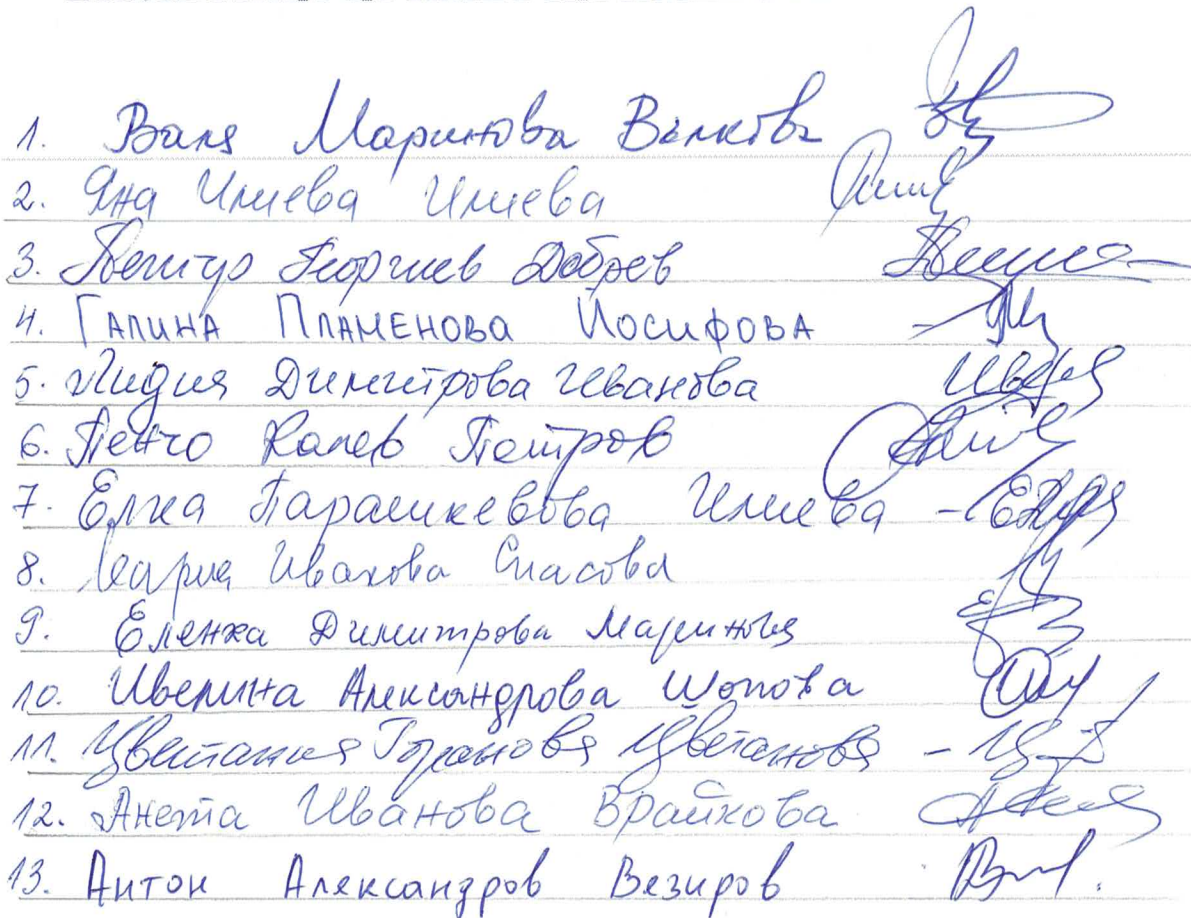 1. Валя Маринова Вълкова
2. Яна Илиева Илиева
3. Петър Георгиев Добрев
4. Галина Пламенова Йосифова
5. Лидия Димитрова Иванова
6. Пенчо Колев Петров
7. Елка Парашкевова Илиева -
8. Мария Иванова Спасова
9. Еленка Димитрова Маринова
10. Ивелина Александрова Шопова
11. Цветанка Горанова Цветанова -
12. Анета Иванова Врайкова
13. Антон Александров Везиров